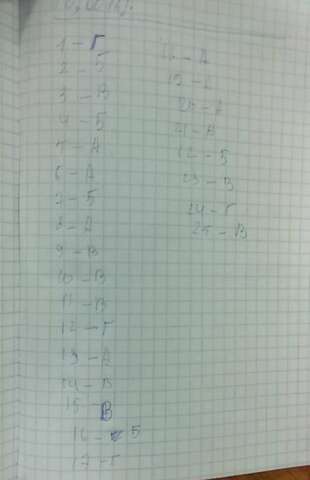 1 - Г
2 - Б
3 - В
4 - Б
5 - А
6 - А
7 - Б
8 - А
9 - В
10 - В
11 - В
12 - Г
13 - А
14 - В
15 - В
16 - Б
17 - Г
18 - А
19 -
20 - А
21 - В
22 - Б
23 - В
24 - Г
25 - В